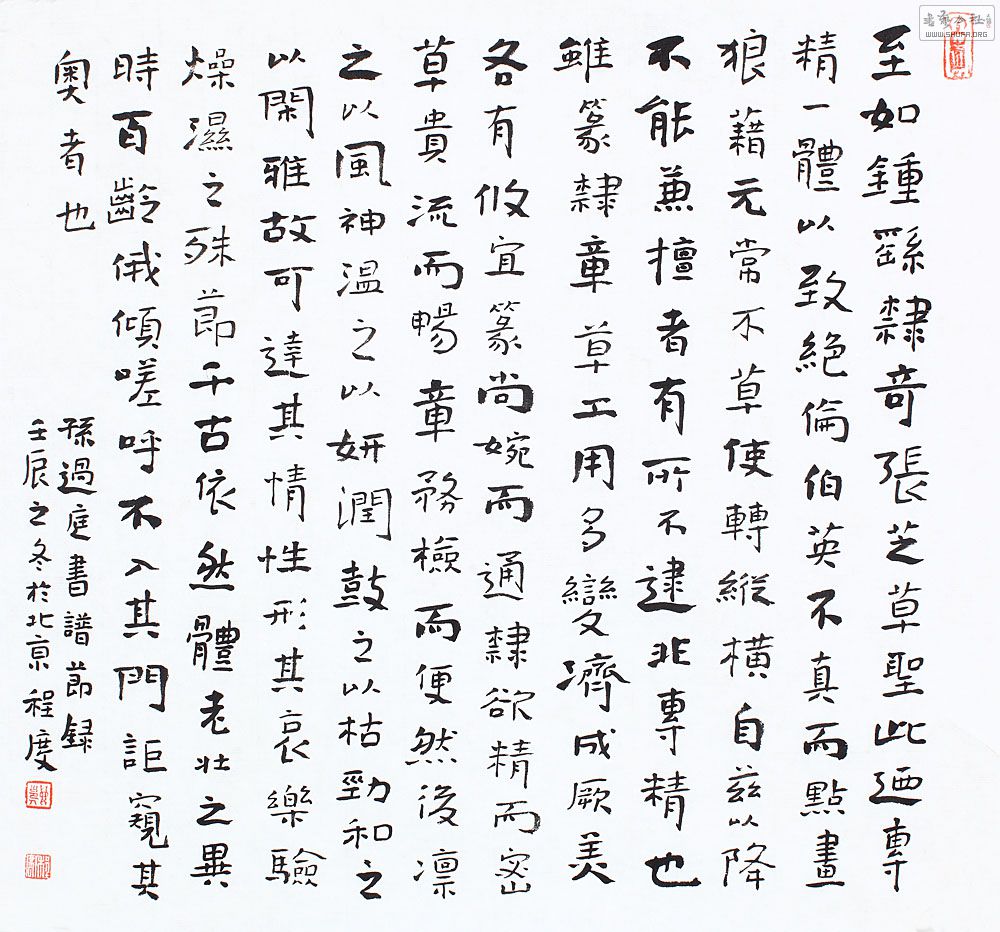 至如鍾繇隸奇張芝草聖此迺專
精一體以致絕倫伯英不真而點畫
狼藉元常不草使轉縱橫自茲以降
不能兼擅者有所不逮非專精也
雖篆隸章草工用多變濟成厥美
各有攸宜篆尚婉而通隸欲精而密
草貴流而暢章務檢而便然後凛
之以風神溫之以妍潤鼓之以枯勁和之
以閑雅故可達其情性形其哀樂驗
燥濕之殊節千古依然體老壯之異
時百齡俄傾嗟呼不入其門詎窺其
奧者也
孫過庭書譜節録
壬辰之冬於北京程度
WWW.SHUFA.ORG